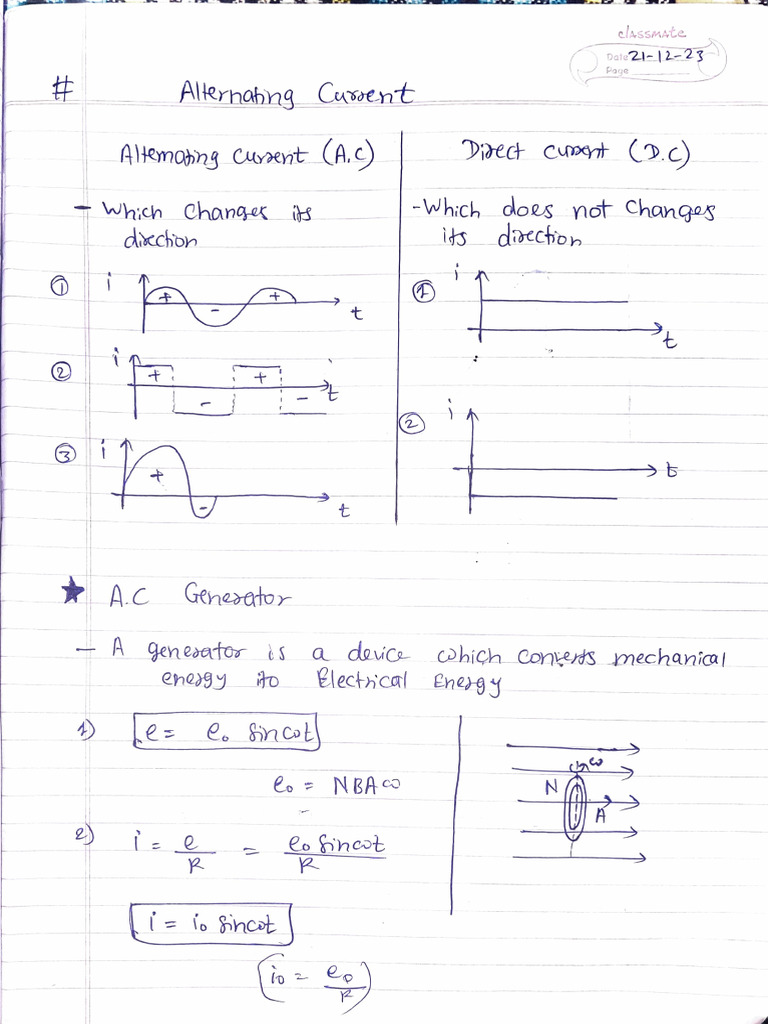 classmate
Date 21-12-23
Page
# Alternating Current
Alternating current (A.C)
- Which changes its
direction
① i + - + t
② i + - + - t
③ i + - t
Direct current (D.C)
- Which does not changes
its direction
① i t
② i t
★ A.C Generator
- A generator is a device which converts mechanical
energy ito Electrical Energy
1) e = e₀ sinωt
e₀ = NBAω
2) i = e/R = e₀ sinωt/R
i = i₀ sinωt
(i₀ = e₀/R)
N ω
A